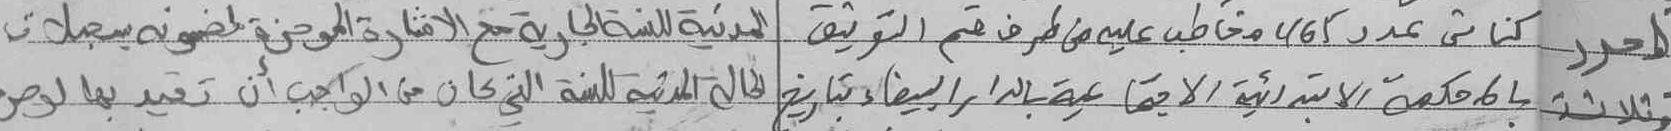 المحرر كناش عدد 461 مخاطب عليه من طرف قسم التوثيق المدنية للسنة الجارية مع الاشارة الموجزة لمضمونه بسجلات
ثلاثة بالمحكمة الابتدائية الاجتماعية بالدار البيضاء بتاريخ الحالة المدنية للسنة التي كان من الواجب أن تقيد بها لوصو